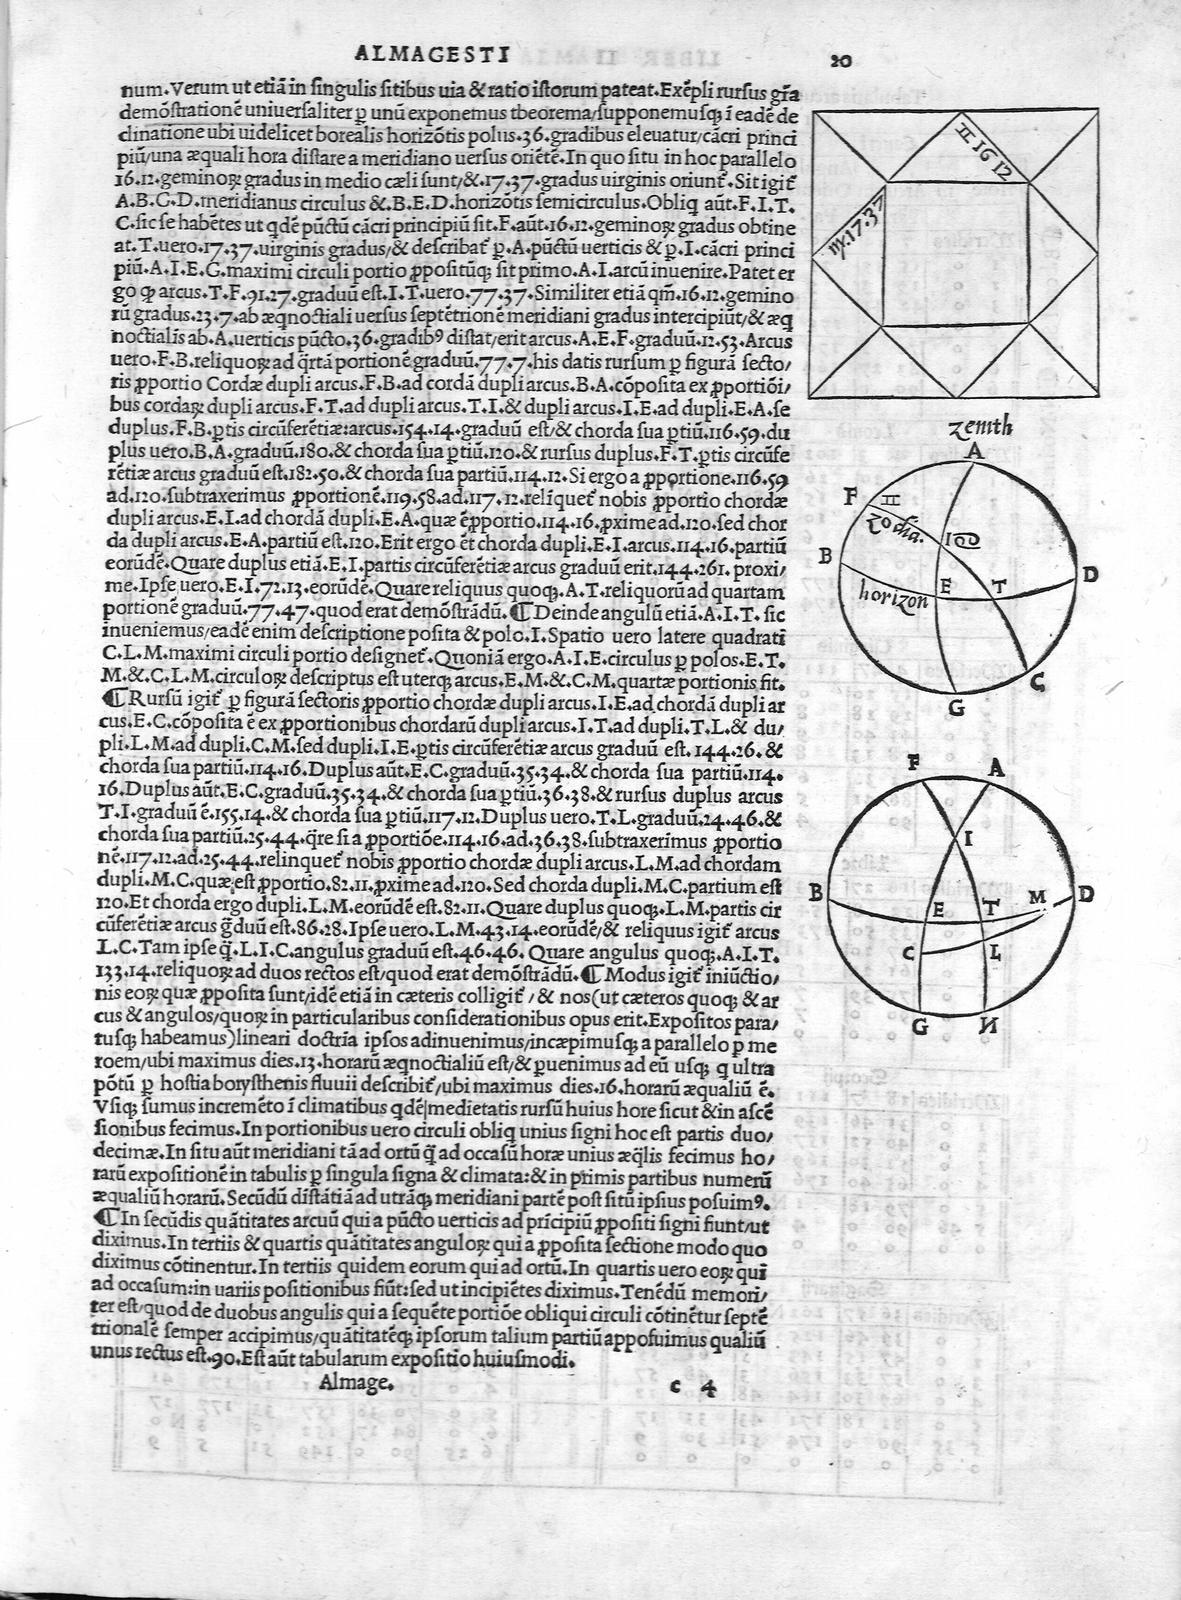 ALMAGESTI
20
num.Verum ut etiã in singulis sitibus uia & ratio istorum pateat.Exẽpli rursus grã
demõstrationẽ uniuersaliter ꝑ unũ exponemus tbeorema/supponemusꝗ ĩ eadẽ de
clinatione ubi uidelicet borealis horizõtis polus.36.gradibus eleuatur/cãcri princi
piũ/una æquali hora distare a meridiano uersus oriẽtẽ.In quo situ in hoc parallelo
16.12.geminoꝝ gradus in medio cæli sunt/&.17.37.gradus uirginis oriunt̃.Sit igit̃
A.B.G.D.meridianus circulus & B.E.D.horizõtis semicirculus.Obliq aũt.F.I.T.
C.sic se habẽtes ut qdẽ pũctũ cãcri principiũ sit.F.aũt.16.12.geminoꝝ gradus obtine
at.T.uero.17.37.uirginis gradus/& describat̃ ꝑ.A.pũctũ uerticis & ꝑ.I.cãcri princi
piũ.A.I.E.G.maximi circuli portio ꝓpositũꝗ sit primo.A.I.arcũ inuenire.Patet er
go ꝙ arcus.T.F.91.27.graduũ est.I.T.uero.77.37.Similiter etiã qm̃.16.12.gemino
rũ gradus.23.7.ab æqnoctiali uersus septẽtrionẽ meridiani gradus intercipiũt/& æq
noctialis ab.A.uerticis pũcto.36.gradibꝰ distat/erit arcus.A.E.F.graduũ.12.53.Arcus
uero.F.B.reliquoꝝ ad q̃rtã portionẽ graduũ.77.7.his datis rursum ꝑ figurã secto/
ris ꝓportio Cordæ dupli arcus.F.B.ad cordã dupli arcus.B.A.cõposita ex ꝓportiõi/
bus cordaꝝ dupli arcus.F.T.ad dupli arcus.T.I.& dupli arcus.I.E.ad dupli.E.A.se
duplus.F.B.ꝑtis circũferẽtiæ:arcus.154.14.graduũ est/& chorda sua ꝑtiũ.116.59.du
plus uero.B.A.graduũ.180.& chorda sua ꝑtiũ.120.& rursus duplus.F.T.ꝑtis circũfe
rẽtiæ arcus graduũ est.182.50.& chorda sua partiũ.114.12.Si ergo a ꝓportione.116.59
ad.120.subtraxerimus ꝓportionẽ.119.58.ad.117.12.reliquet̃ nobis ꝓportio chordæ
dupli arcus.E.I.ad chordã dupli.E.A.quæ ẽ ꝓportio.114.16.ꝓxime ad.120.sed chor
da dupli arcus.E.A.partiũ est.120.Erit ergo ẽt chorda dupli.E.I.arcus.114.16.partiũ
eorũdẽ.Quare duplus etiã.E.I.partis circũferẽtiæ arcus graduũ erit.144.261.proxi/
me.Ipse uero.E.I.72.13.eorũdẽ.Quare reliquus quoqꝫ.A.T.reliquorũ ad quartam
portionẽ graduũ.77.47.quod erat demõstrãdũ.¶Deinde angulũ etiã.A.I.T.sic
inueniemus/eadẽ enim descriptione posita & polo.I.Spatio uero latere quadrati
C.L.M.maximi circuli portio designet̃.Quoniã ergo.A.I.E.circulus ꝑ polos.E.T.
M.&.C.L.M.circuloꝝ descriptus est uterqꝫ arcus.E.M.&.C.M.quartæ portionis fit.
¶Rursũ igit̃ ꝑ figurã sectoris ꝓportio chordæ dupli arcus.I.E.ad chordã dupli ar
cus.E.C.cõposita ẽ ex ꝓportionibus chordarũ dupli arcus.I.T.ad dupli.T.L.& du/
pli.L.M.ad dupli.C.M.sed dupli.I.E.ꝑtis circũferẽtiæ arcus graduũ est.144.26.&
chorda sua partiũ.114.16.Duplus aũt.E.C.graduũ.35.34.& chorda sua partiũ.114.
16.Duplus aũt.E.C.graduũ.35.34.& chorda sua ꝑtiũ.36.38.& rursus duplus arcus
T.I.graduũ ẽ.155.14.& chorda sua ꝑtiũ.117.12.Duplus uero.T.L.graduũ.24.46.&
chorda sua partiũ.25.44.q̃re si a ꝓportiõe.114.16.ad.36.38.subtraxerimus ꝓportio
nẽ.117.12.ad.25.44.relinquet̃ nobis ꝓportio chordæ dupli arcus.L.M.ad chordam
dupli.M.C.quæ est ꝓportio.82.11.ꝓxime ad.120.Sed chorda dupli.M.C.partium est
120.Et chorda ergo dupli.L.M.eorũdẽ est.82.11.Quare duplus quoqꝫ.L.M.partis cir
cũferẽtiæ arcus g̃duũ est.86.28.Ipse uero.L.M.43.14.eorũdẽ/& reliquus igit̃ arcus
L.C.Tam ipse q̃.L.I.C.angulus graduũ est.46.46.Quare angulus quoqꝫ.A.I.T.
133.14.reliquoꝝ ad duos rectos est/quod erat demõstrãdũ.¶Modus igit̃ iniũctio/
nis eoꝝ quæ ꝓposita sunt/idẽ etiã in cæteris colligit̃/& nos(ut cæteros quoqꝫ & ar
cus & angulos/quoꝝ in particularibus considerationibus opus erit.Expositos para/
tusqꝫ habeamus)lineari doctria ipsos adinuenimus/incæpimusqꝫ a parallelo ꝑ me
roem/ubi maximus dies.13.horarũ æqnoctialiũ est/& ꝑuenimus ad eũ usqꝫ q ultra
põtũ ꝑ hostia borysthenis fluuii describit̃/ubi maximus dies.16.horarũ æqualiũ ẽ.
Vsiqꝫ sumus incremẽto ĩ climatibus qdẽ medietatis rursũ huius hore sicut & in ascẽ
sionibus fecimus.In portionibus uero circuli obliq unius signi hoc est partis duo/
decimæ.In situ aũt meridiani tã ad ortũ q̃ ad occasũ horæ unius æq̃lis fecimus ho/
rarũ expositionẽ in tabulis ꝑ singula signa & climata:& in primis partibus numerũ
æqualiũ horarũ.Secũdũ distãtiã ad utrãqꝫ meridiani partẽ post sitũ ipsius posuimꝰ.
¶In secũdis quãtitates arcuũ qui a pũcto uerticis ad prĩcipiũ ꝓpositi signi fiunt/ut
diximus.In tertiis & quartis quãtitates anguloꝝ qui a ꝓposita sectione modo quo
diximus cõtinentur.In tertiis quidem eorum qui ad ortũ.In quartis uero eoꝝ qui
ad occasum:in uariis positionibus fiũt:sed ut incipiẽtes diximus.Tenẽdũ memori/
ter est/quod de duobus angulis qui a sequẽte portiõe obliqui circuli cõtinẽtur septẽ
trionalẽ semper accipimus/quãtitatẽqꝫ ipsorum talium partiũ apposuimus qualiũ
unus rectus est.90.Est aũt tabularum expositio huiusmodi.
Almage.
c 4
♊ 16 12
♍.17.37
zemth
A
F
♊
zodia.
I ♋
B
D
E
T
horizon
C
G
F
A
I
B
D
E
T
M
C
L
G
N